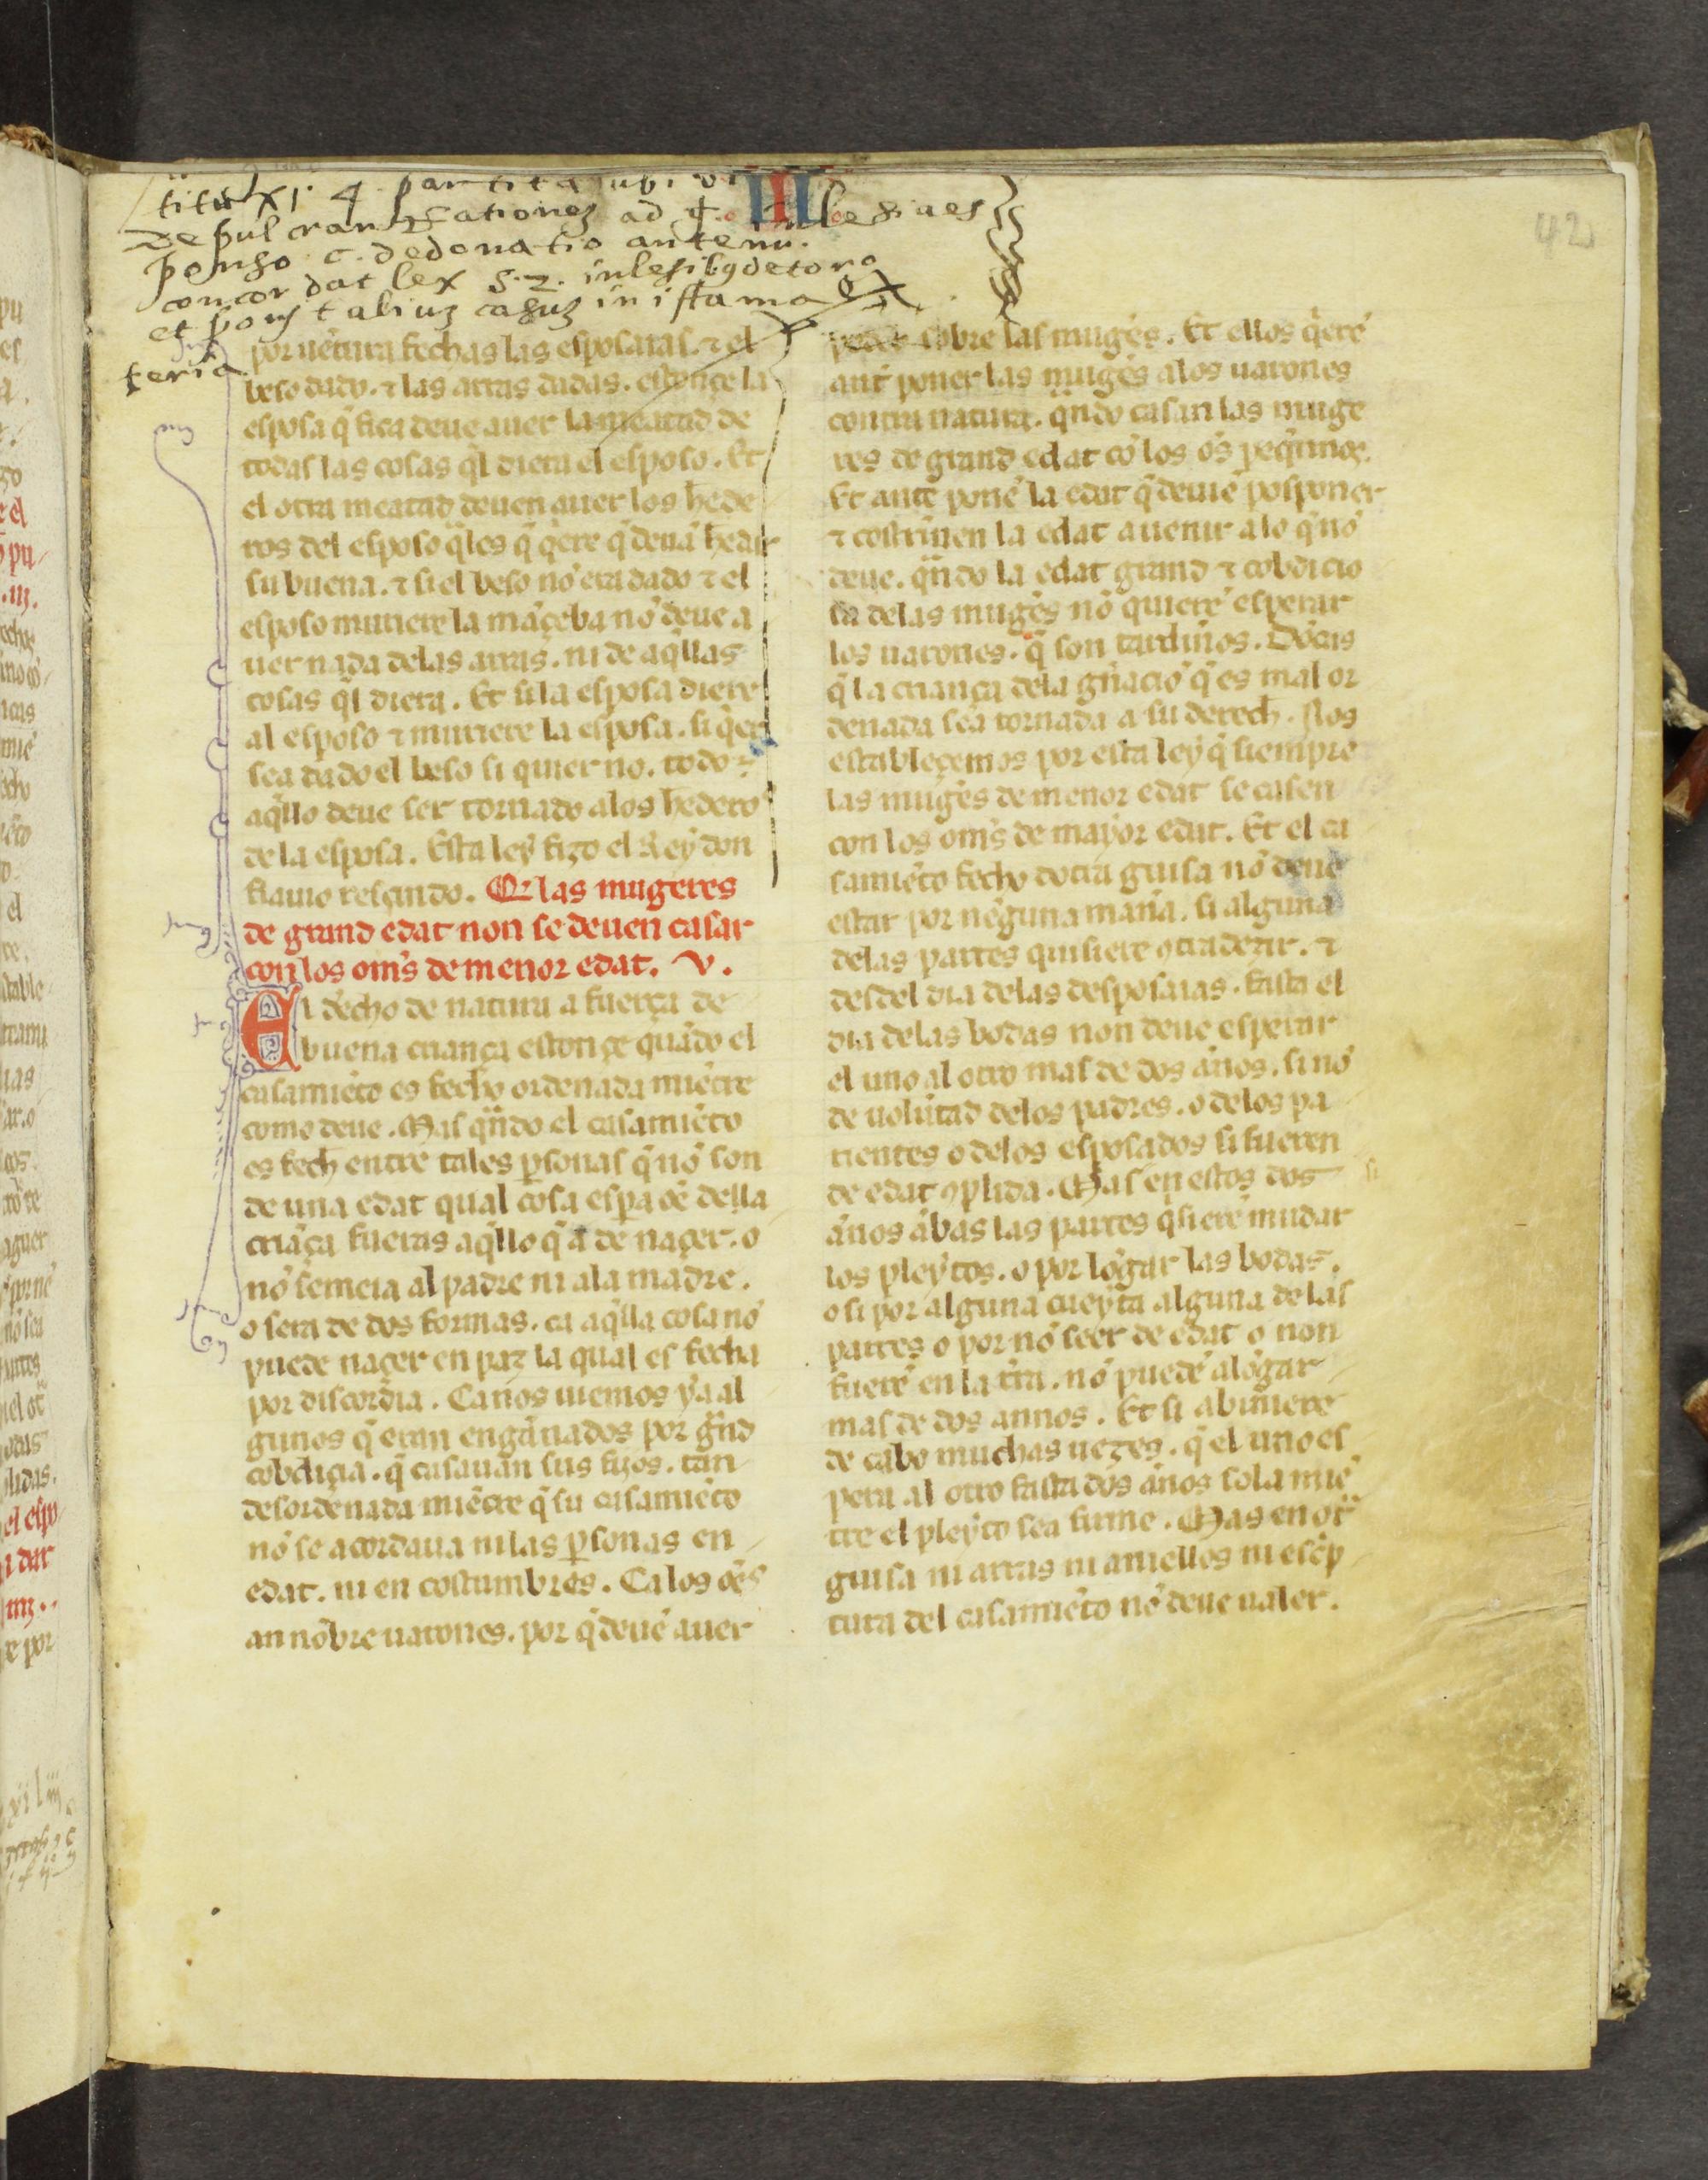 III
42
titu XI 4 partita
ad
c. de donatio ante nu.
concordat lex 52. in legibus de toro
et pons talius casus in ista ma
teria
por uẽtura fechas las esposaias. ⁊ el
beso dado. ⁊ las arras dadas. estonçe la
esposa q̃ fica deue auer la meatad de
todas las cosas q̃l diera el esposo. Et
el otra meatad deuen auer los hede
ros del esposo q̃les q̃ q̃ere q̃ deuã hedar
su buena. ⁊ si el beso nõ era dado ⁊ el
esposo muriere la mãçeba nõ deue a
uer nada delas arras. ni de aq̃llas
cosas q̃l diera. Et si la esposa diere
al esposo ⁊ muriere la esposa. si q̃er
sea dado el beso si quier no. todo
aq̃llo deue ser tornado alos hedero
de la esposa. Esta ley fizo el Rey don
flauio resçindo. Q̃ las mugeres
de grand edat non se deuen casar
con los oms̃ de menor edat. V.
El dẽcho de natura a fuerça de
buena criança estonçe quãdo el
casamiẽto es fecho ordenada miẽtre
como deue. Mas qñdo el casamiẽto
es fech entre tales ꝑsonas q̃ nõ son
de una edat qual cosa esꝑa oẽ della
criãça fueras aq̃llo q̃ a de naçer. o
nõ semeia al padre ni ala madre.
o sera de dos formas. ca aq̃lla cosa nõ
puede naçer en paz la qual es fecha
por discordia. Ca nos uiemos ya al
gunos q̃ eran engãnados por gñd
cobdiçia. q̃ casauan sus fijos. tan
desordenada miẽtre q̃ su casamiẽto
nõ se acordaua ni las ꝑsonas en
edat. ni en costumbres. Ca los oẽs
an nõbre uarones. por q̃ deuẽ auer
poder sobre las mugẽs. Et ellos q̃erẽ
ant̃ poner las mugẽs alos uarones
contra natura. qñdo casan las muge
res de grand edat cõ los oẽs peq̃nnos.
Et ante ponẽ la edat q̃ deuiẽ posponer
⁊ costrinnen la edat auenir alo q̃ nõ
deue. qñdo la edat grand ⁊ cobdicio
sa delas mugẽs nõ quierẽ esperar
los uarones. q̃ son tardinos. Dõcas
q̃ la criança dela gñaciõ q̃ es mal or
denada sea tornada a su derech. Nos
estableçemos por esta ley q̃ siempre
las mugẽs de menor edat se casen
con los oms̃ de mayor edat. Et el ca
samiẽto fecho dotra guisa nõ deue
estar por nẽguna mana. si alguna
delas partes quisiere ꝯtradezir. ⁊
desdel dia delas desposaias. fasta el
dia delas bodas non deue esperar
el uno al otro mas de dos ãnos. si nõ
de uolũtad delos padres. o delos pa
rientes o delos esposados si fueren
de edat ꝯplida. Mas en estos dos si
ãnos ãbas las partes q̃sierẽ mudar
los pleytos. o por lõgar las bodas.
o si por alguna cueyta alguna delas
partes o por nõ seer de edat o non
fuerẽ en la tr̃ra. nõ puedẽ alõgar
mas de dos annos. Et si abiniere
de cabo muchas uezes. q̃ el uno es
pera al otro fasta dos ãnos sola miẽ
tre el pleyto sea firme. Mas en otr̃
guisa ni arras ni aniellos ni esc̃p
tura del casamiẽto nõ deue ualer.